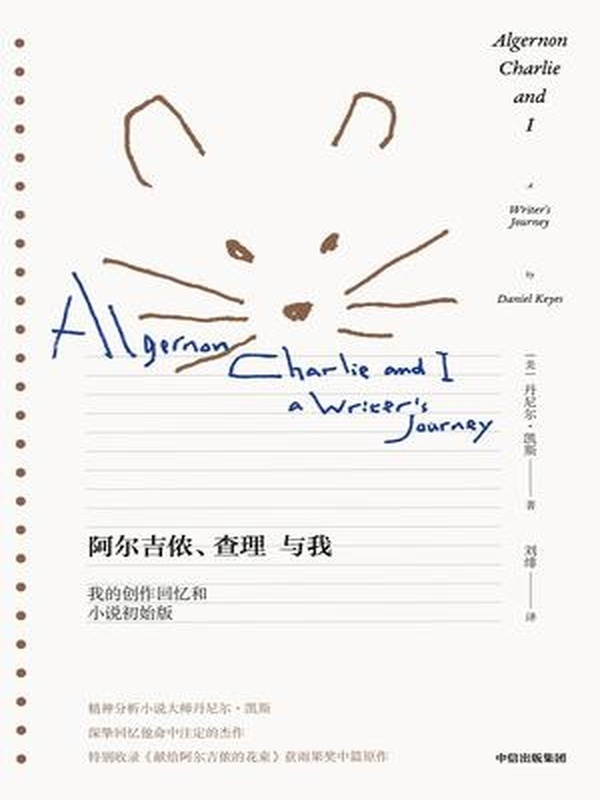 Algernon
Charlie
and
I
A
Writer's
Journey
by
Daniel Keyes
Algernon
Charlie and I
a Writer's
Journey
[美] 丹尼尔·凯斯——著
刘绯——译
阿尔吉侬、查理 与我
我的创作回忆和
小说初始版
精神分析小说大师丹尼尔·凯斯
深挚回忆他命中注定的杰作
特别收录《献给阿尔吉侬的花束》获雨果奖中篇原作
中信出版集团